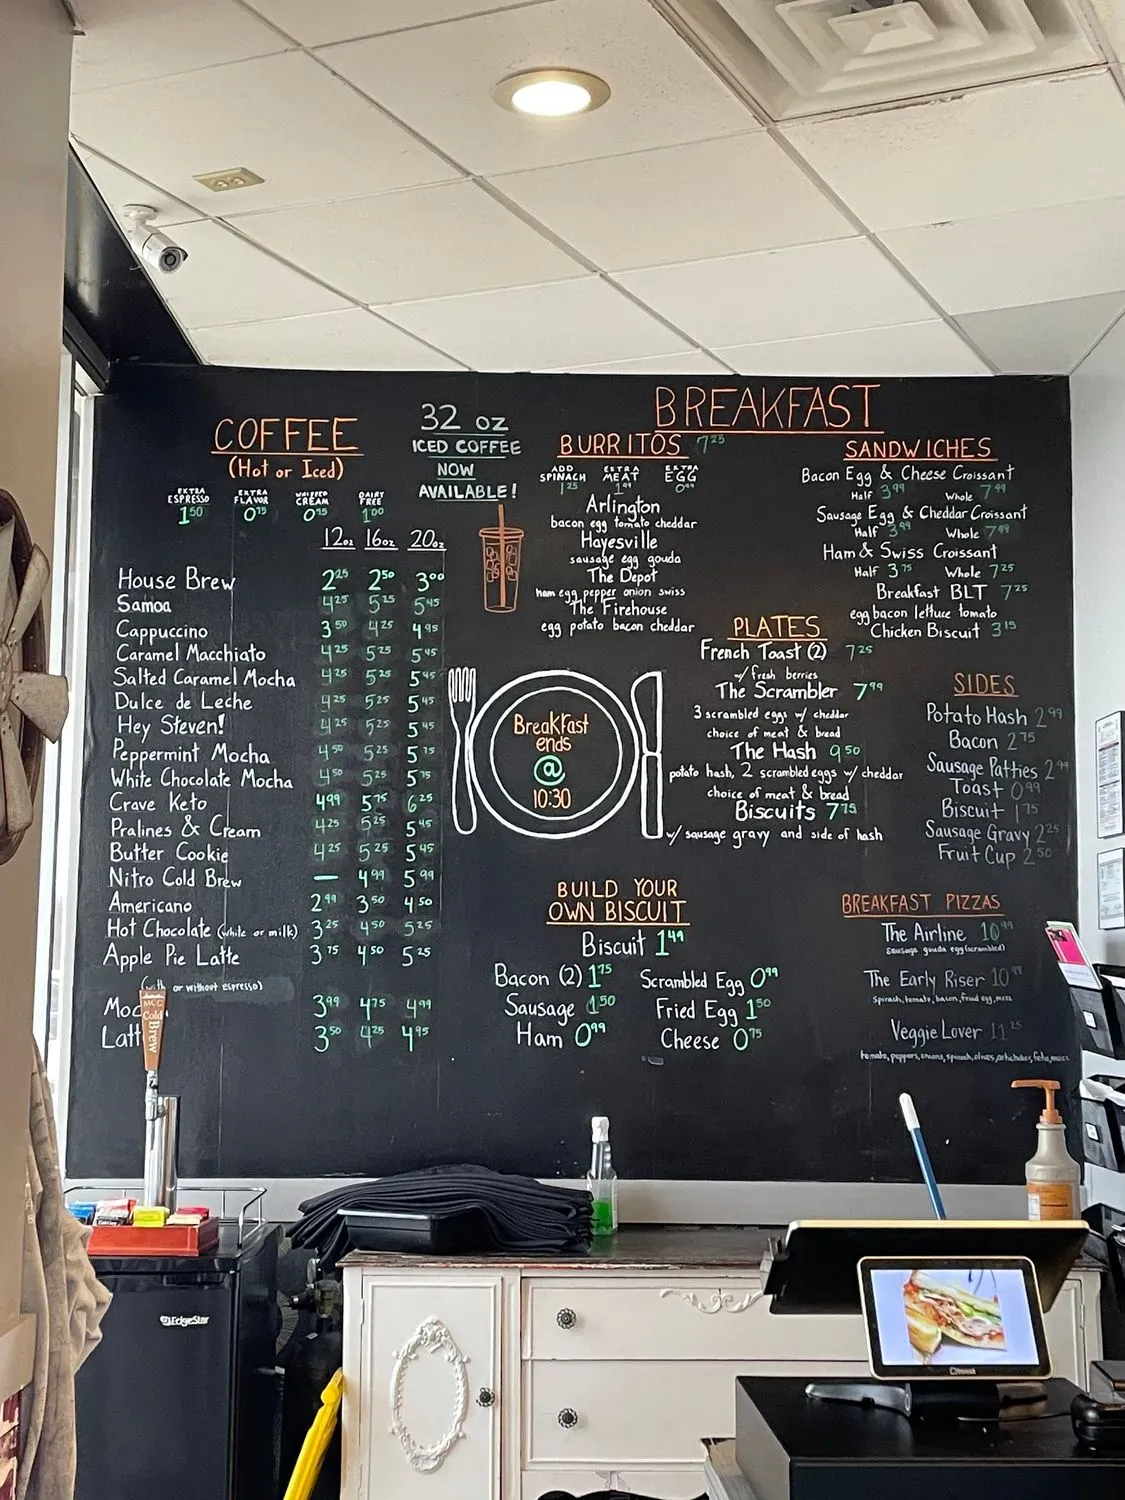 COFFEE
(Hot or Iced)
EXTRA ESPRESSO 1.50
EXTRA FLAVOR 0.75
WHIPPED CREAM 0.95
DAIRY FREE 1.00
12oz 16oz 20oz
House Brew 2.25 2.50 3.00
Samoa 4.25 5.25 5.45
Cappuccino 3.50 4.25 4.95
Caramel Macchiato 4.25 5.25 5.45
Salted Caramel Mocha 4.25 5.25 5.45
Dulce de Leche 4.25 5.25 5.45
Hey Steven! 4.25 5.25 5.45
Peppermint Mocha 4.50 5.25 5.75
White Chocolate Mocha 4.50 5.25 5.75
Crave Keto 4.99 5.75 6.25
Pralines & Cream 4.25 5.25 5.45
Butter Cookie 4.25 5.25 5.45
Nitro Cold Brew — 4.99 5.99
Americano 2.99 3.50 4.50
Hot Chocolate (white or milk) 3.25 4.50 5.25
Apple Pie Latte 3.75 4.50 5.25
or without espresso)
Moc 3.99 4.75 4.99
Latt 3.50 4.25 4.95
MCC
Cold Brew
32 oz
ICED COFFEE
NOW
AVAILABLE!
Breakfast
ends
@
10:30
BREAKFAST
BURRITOS 7.25
ADD SPINACH 1.25
EXTRA MEAT 1.99
EXTRA EGG 0.99
Arlington
bacon egg tomato cheddar
Hayesville
sausage egg gouda
The Depot
ham egg pepper onion swiss
The Firehouse
egg potato bacon cheddar
SANDWICHES
Bacon Egg & Cheese Croissant
Half 3.99 Whole 7.99
Sausage Egg & Cheddar Croissant
Half 3.99 Whole 7.99
Ham & Swiss Croissant
Half 3.75 Whole 7.25
Breakfast BLT 7.25
egg bacon lettuce tomato
Chicken Biscuit 3.15
PLATES
French Toast (2) 7.25
w/ fresh berries
The Scrambler 7.99
3 scrambled eggs w/ cheddar
choice of meat & bread
The Hash 9.50
potato hash, 2 scrambled eggs w/ cheddar
choice of meat & bread
Biscuits 7.75
w/ sausage gravy and side of hash
SIDES
Potato Hash 2.99
Bacon 2.75
Sausage Patties 2.99
Toast 0.99
Biscuit 1.75
Sausage Gravy 2.25
Fruit Cup 2.50
BUILD YOUR
OWN BISCUIT
Biscuit 1.49
Bacon (2) 1.75
Sausage 1.50
Ham 0.99
Scrambled Egg 0.99
Fried Egg 1.50
Cheese 0.75
BREAKFAST PIZZAS
The Airline 10.99
sausage gouda egg (scrambled)
The Early Riser 10.99
Spinach, tomato, bacon, fried egg, mozz
Veggie Lover 11.25
tomato, peppers, onions, spinach, olives, artichokes, feta, mozz
EdgeStar
toast